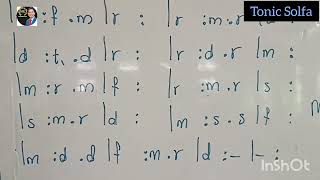 Tonic Solfa
:f .m |r : |r :m.r
|d :t, .d |r : |r :d.r |m :
|m :r .m |f : |r :m.r |s :
|s :m.r |d : |m :s.s |f : m
|m :d .d |f :m.r |d :- |- :
InShOt